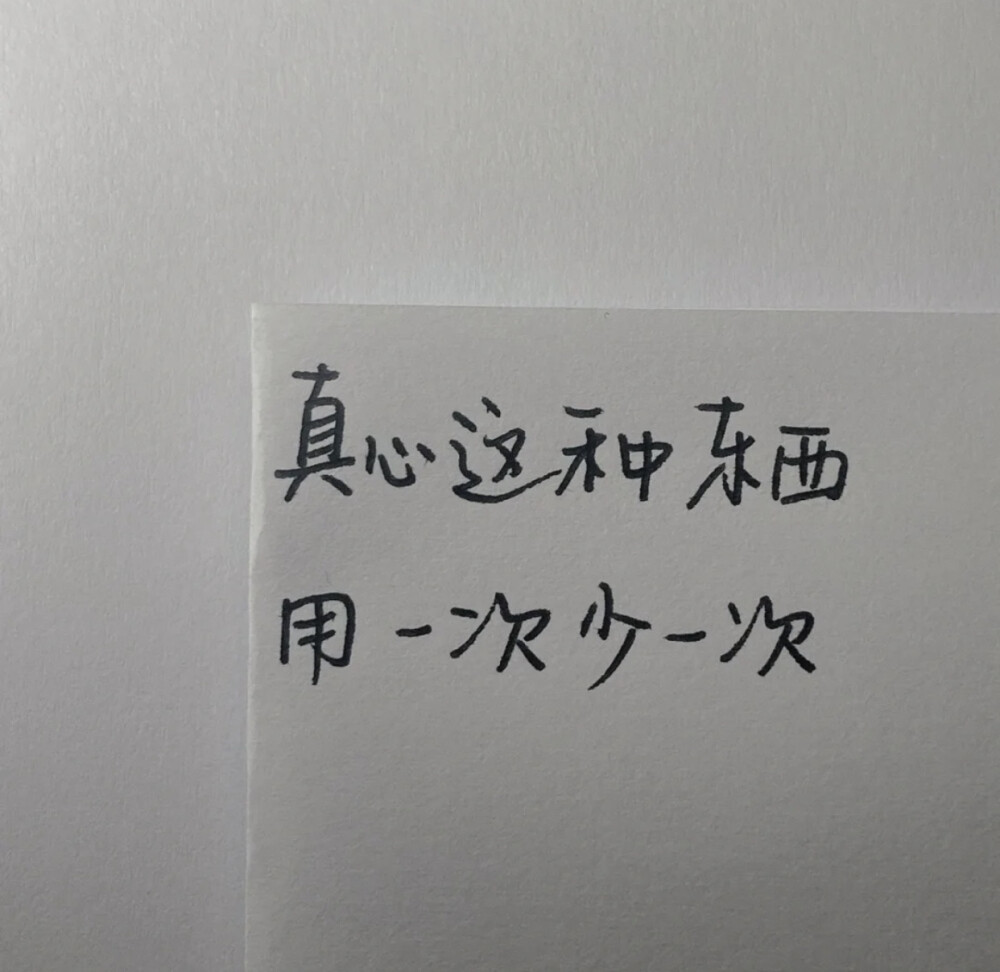 真心这种东西
用一次少一次